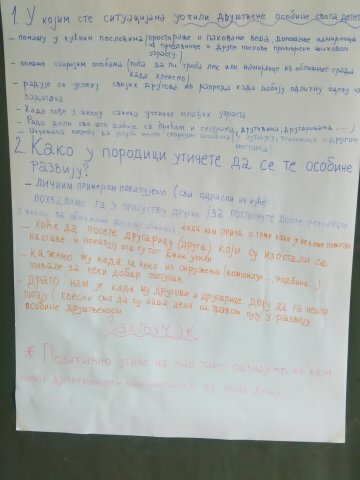 1. У којим сте ситуацијама уочили друштвене особине свога детета
– помажу у кућним пословима (простирање и паковање веша, доношење намирница
из продавнице и друге послове примерене њиховом
узрасту)
– помаже старијим особама (пита да ли треба лек или намирнице из оближњег града
када кренемо)
– радује се успеху својих другова из разреда када добију одличну оцену или
задатака
– Када пође у школу сачека ученике млађих узраста
– Радо дели све што добије са братом и сестрама, друговима, другарицама ...)
места)
2. Како у породици утичете да се те особине
развију?
– Личним примером показујемо (сви одрасли из куће):
похвалимо га у присуству других (за постигнуте добре резултате
у школи, за када нам прича о томе како је некоме помогао
– хоће да посете другарицу (друга) који су изостали са
наставе и показују шта су тог дана учили
– кажемо му када га неко из окружења (комшилук, родбина...)
похвали за неки добар поступак
– Драго нам је када му другови и другарице дођу да га нешто
питају (свесни смо да су наша деца на правом путу у развоју
особине друштвености
Закључак
* Позитивно утиче на нас, јако сазнајемо на ком
нивоу друштвености – социјализације су наша деца